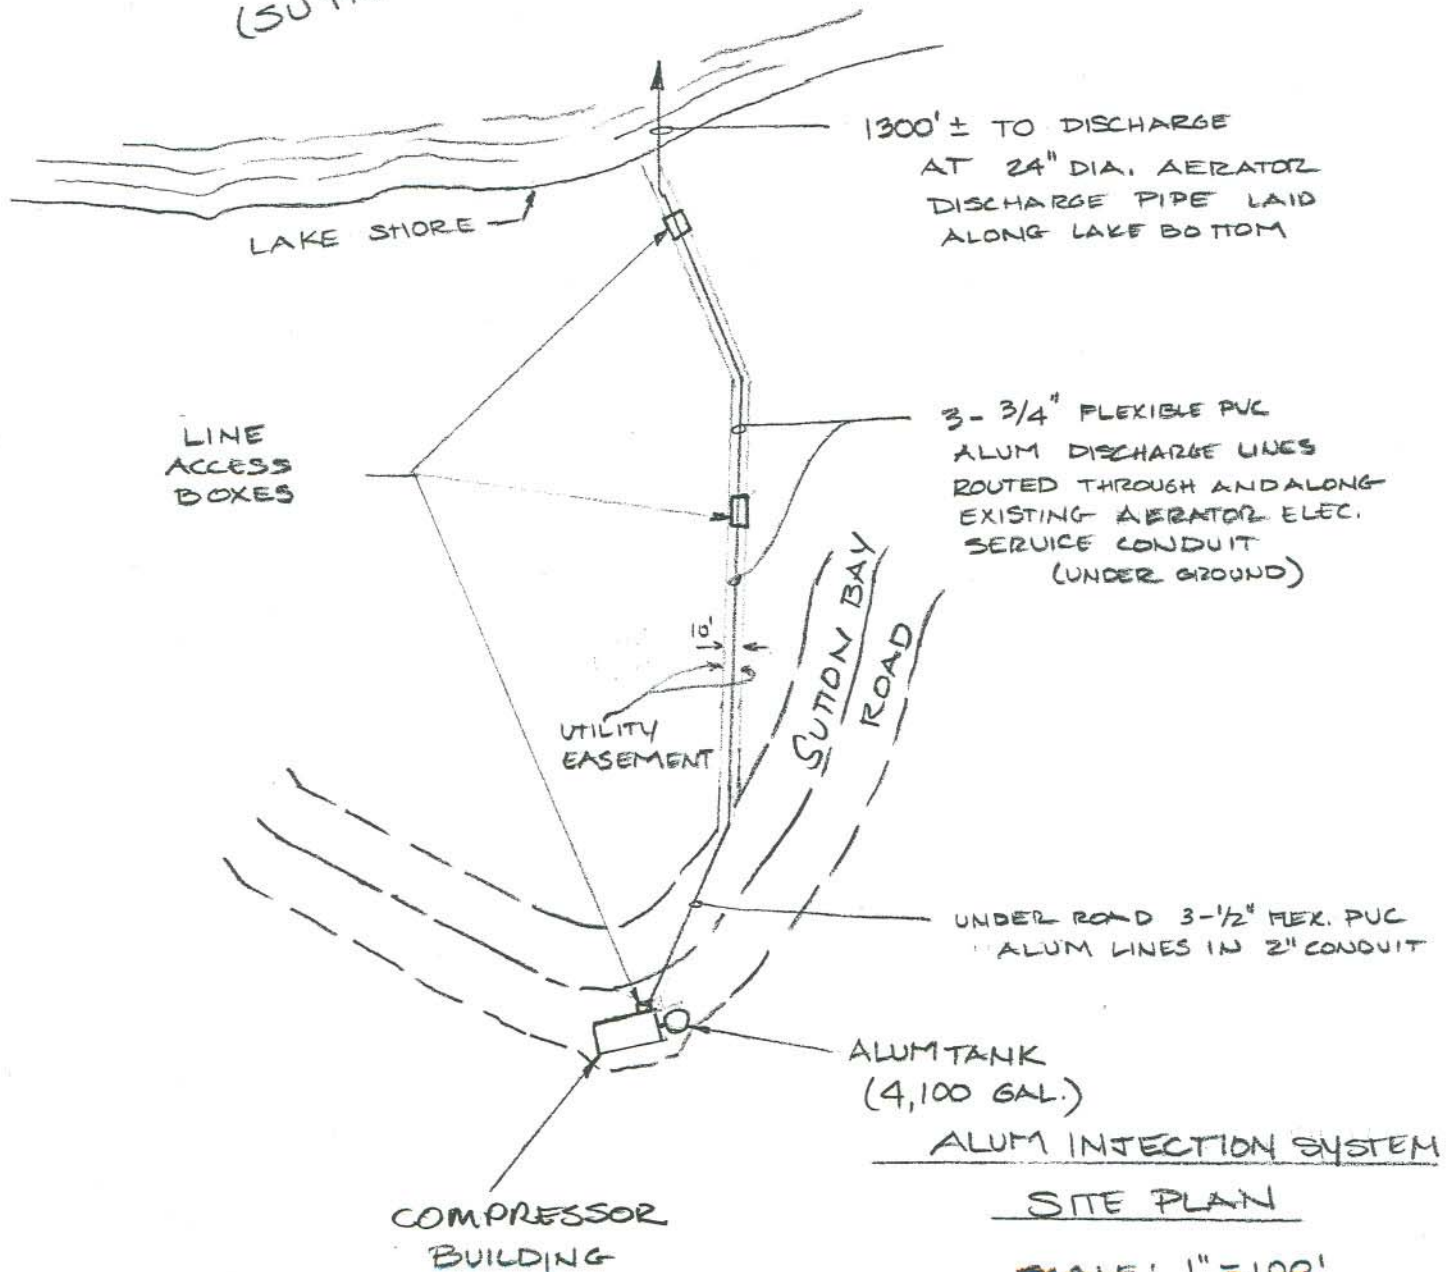 1300' ± TO DISCHARGE
AT 24" DIA. AERATOR
DISCHARGE PIPE LAID
ALONG LAKE BOTTOM
LAKE SHORE
LINE
ACCESS
BOXES
3 - 3/4" FLEXIBLE PVC
ALUM DISCHARGE LINES
ROUTED THROUGH AND ALONG
EXISTING AERATOR ELEC.
SERVICE CONDUIT
(UNDER GROUND)
10'
UTILITY
EASEMENT
SUTTON BAY
ROAD
UNDER ROAD 3-1/2" FLEX. PVC
ALUM LINES IN 2" CONDUIT
ALUM TANK
(4,100 GAL.)
COMPRESSOR
BUILDING
ALUM INJECTION SYSTEM
SITE PLAN
SCALE: 1" = 100'